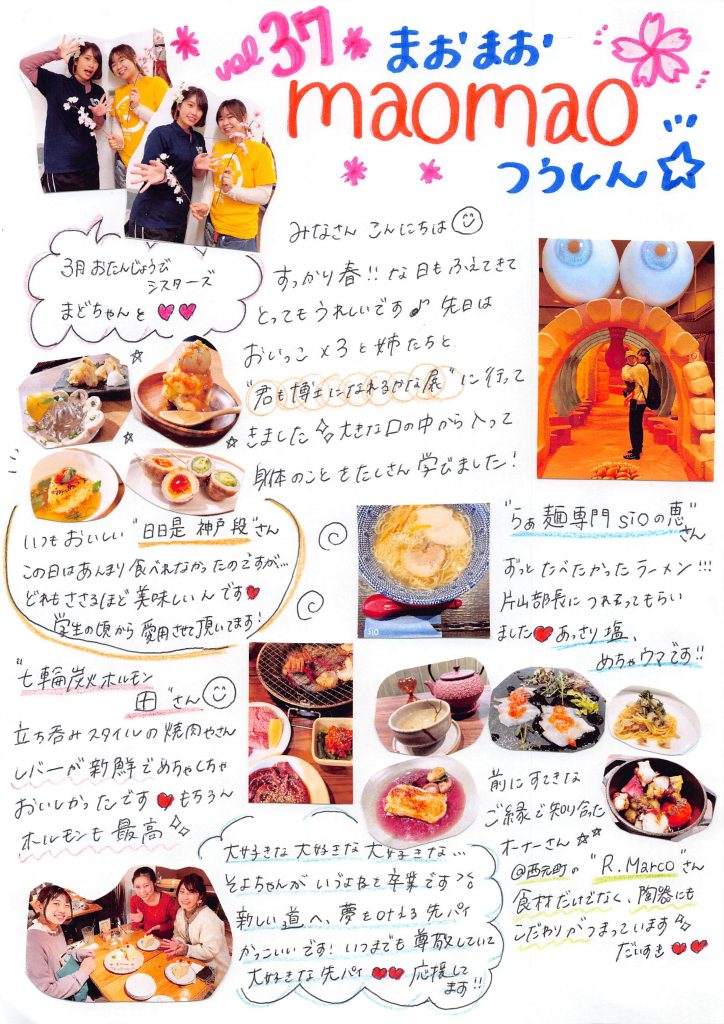 vol 37
まおまお
maomao
つうしん
3月おたんじょうび
シスターズ
まどちゃんと
みなさん こんにちは
すっかり春!! な日もふえてきて
とってもうれしいです♪ 先日は
おいっこ×3と姉たちと
"君も博士になれるかな展"に行って
きました 大きな口の中から入って
身体のことをたくさん学びました!
いつもおいしい"日日是 神戸段"さん
この日はあんまり食べれなかったのですが…
どれもささるほど美味しいんです
学生の頃から愛用させて頂いてます!
"らぁ麺専門 sioの恵"
さん
ずっとたべたかったラーメン!!!
片山部長につれてってもらい
ました あっさり塩、
めちゃウマです!!
SIO
"七輪炭火ホルモン
田"さん
立ち呑みスタイルの焼肉やさん
レバーが新鮮でめちゃくちゃ
おいしかったです もちろん
ホルモンも最高
前にすてきな
ご縁で知り合った
オーナーさん
@西元町の"R.Marco"さん
食材だけでなく、陶器にも
こだわりがつまっています
だいすき
大好きな大好きな大好きな…
そよちゃんがいよいよ卒業です
新しい道へ、夢を叶える先パイ
かっこいいです! いつまでも尊敬していて
大好きな先パイ 応援して
ます!!